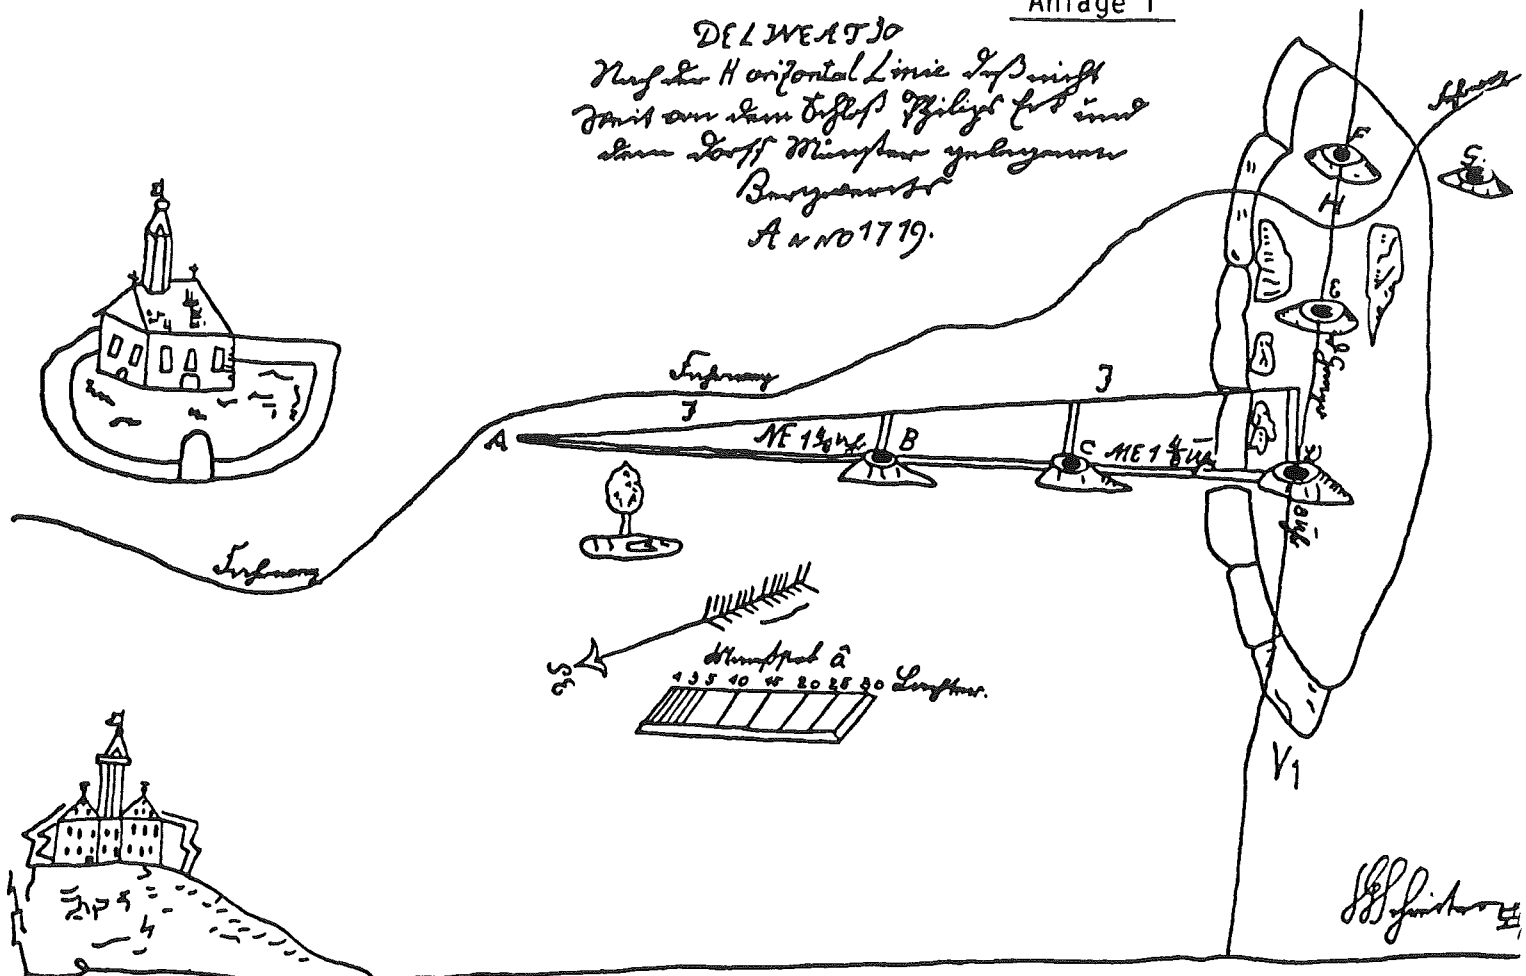 Anlage 1
DELINEATIO
Nach der Horizontal Linie deß nicht
Weit von dem Schloß Philips Eck und
dem Dorff Münster gelegenen
Bergwercks
ANNO 1719.
F
G.
H
E
Fuhrweg
J
J
A
B
C
D
Fuhrweg
SE
Maaßstab â
1 3 5 10 15 20 25 30 Lachter.
V1